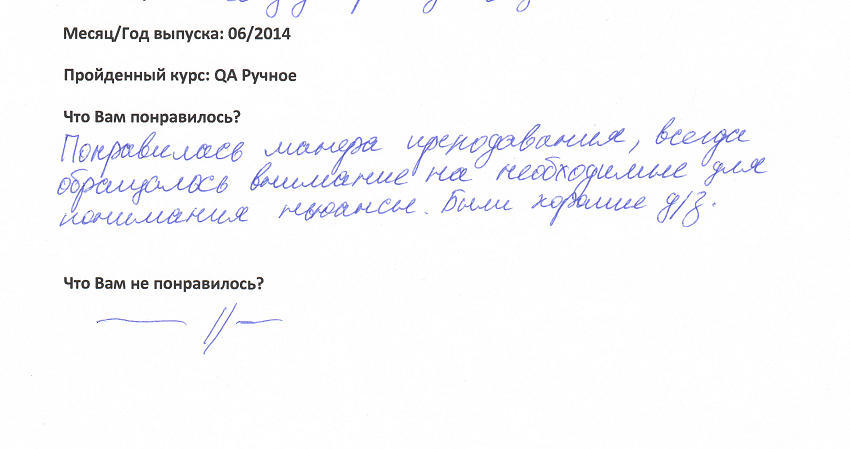 Месяц/Год выпуска: 06/2014
Пройденный курс: QA Ручное
Что Вам понравилось?
Понравилась манера преподавания, всегда
обращалось внимание на необходимые для
понимания нюансы. Были хорошие д/з.
Что Вам не понравилось?
— // —